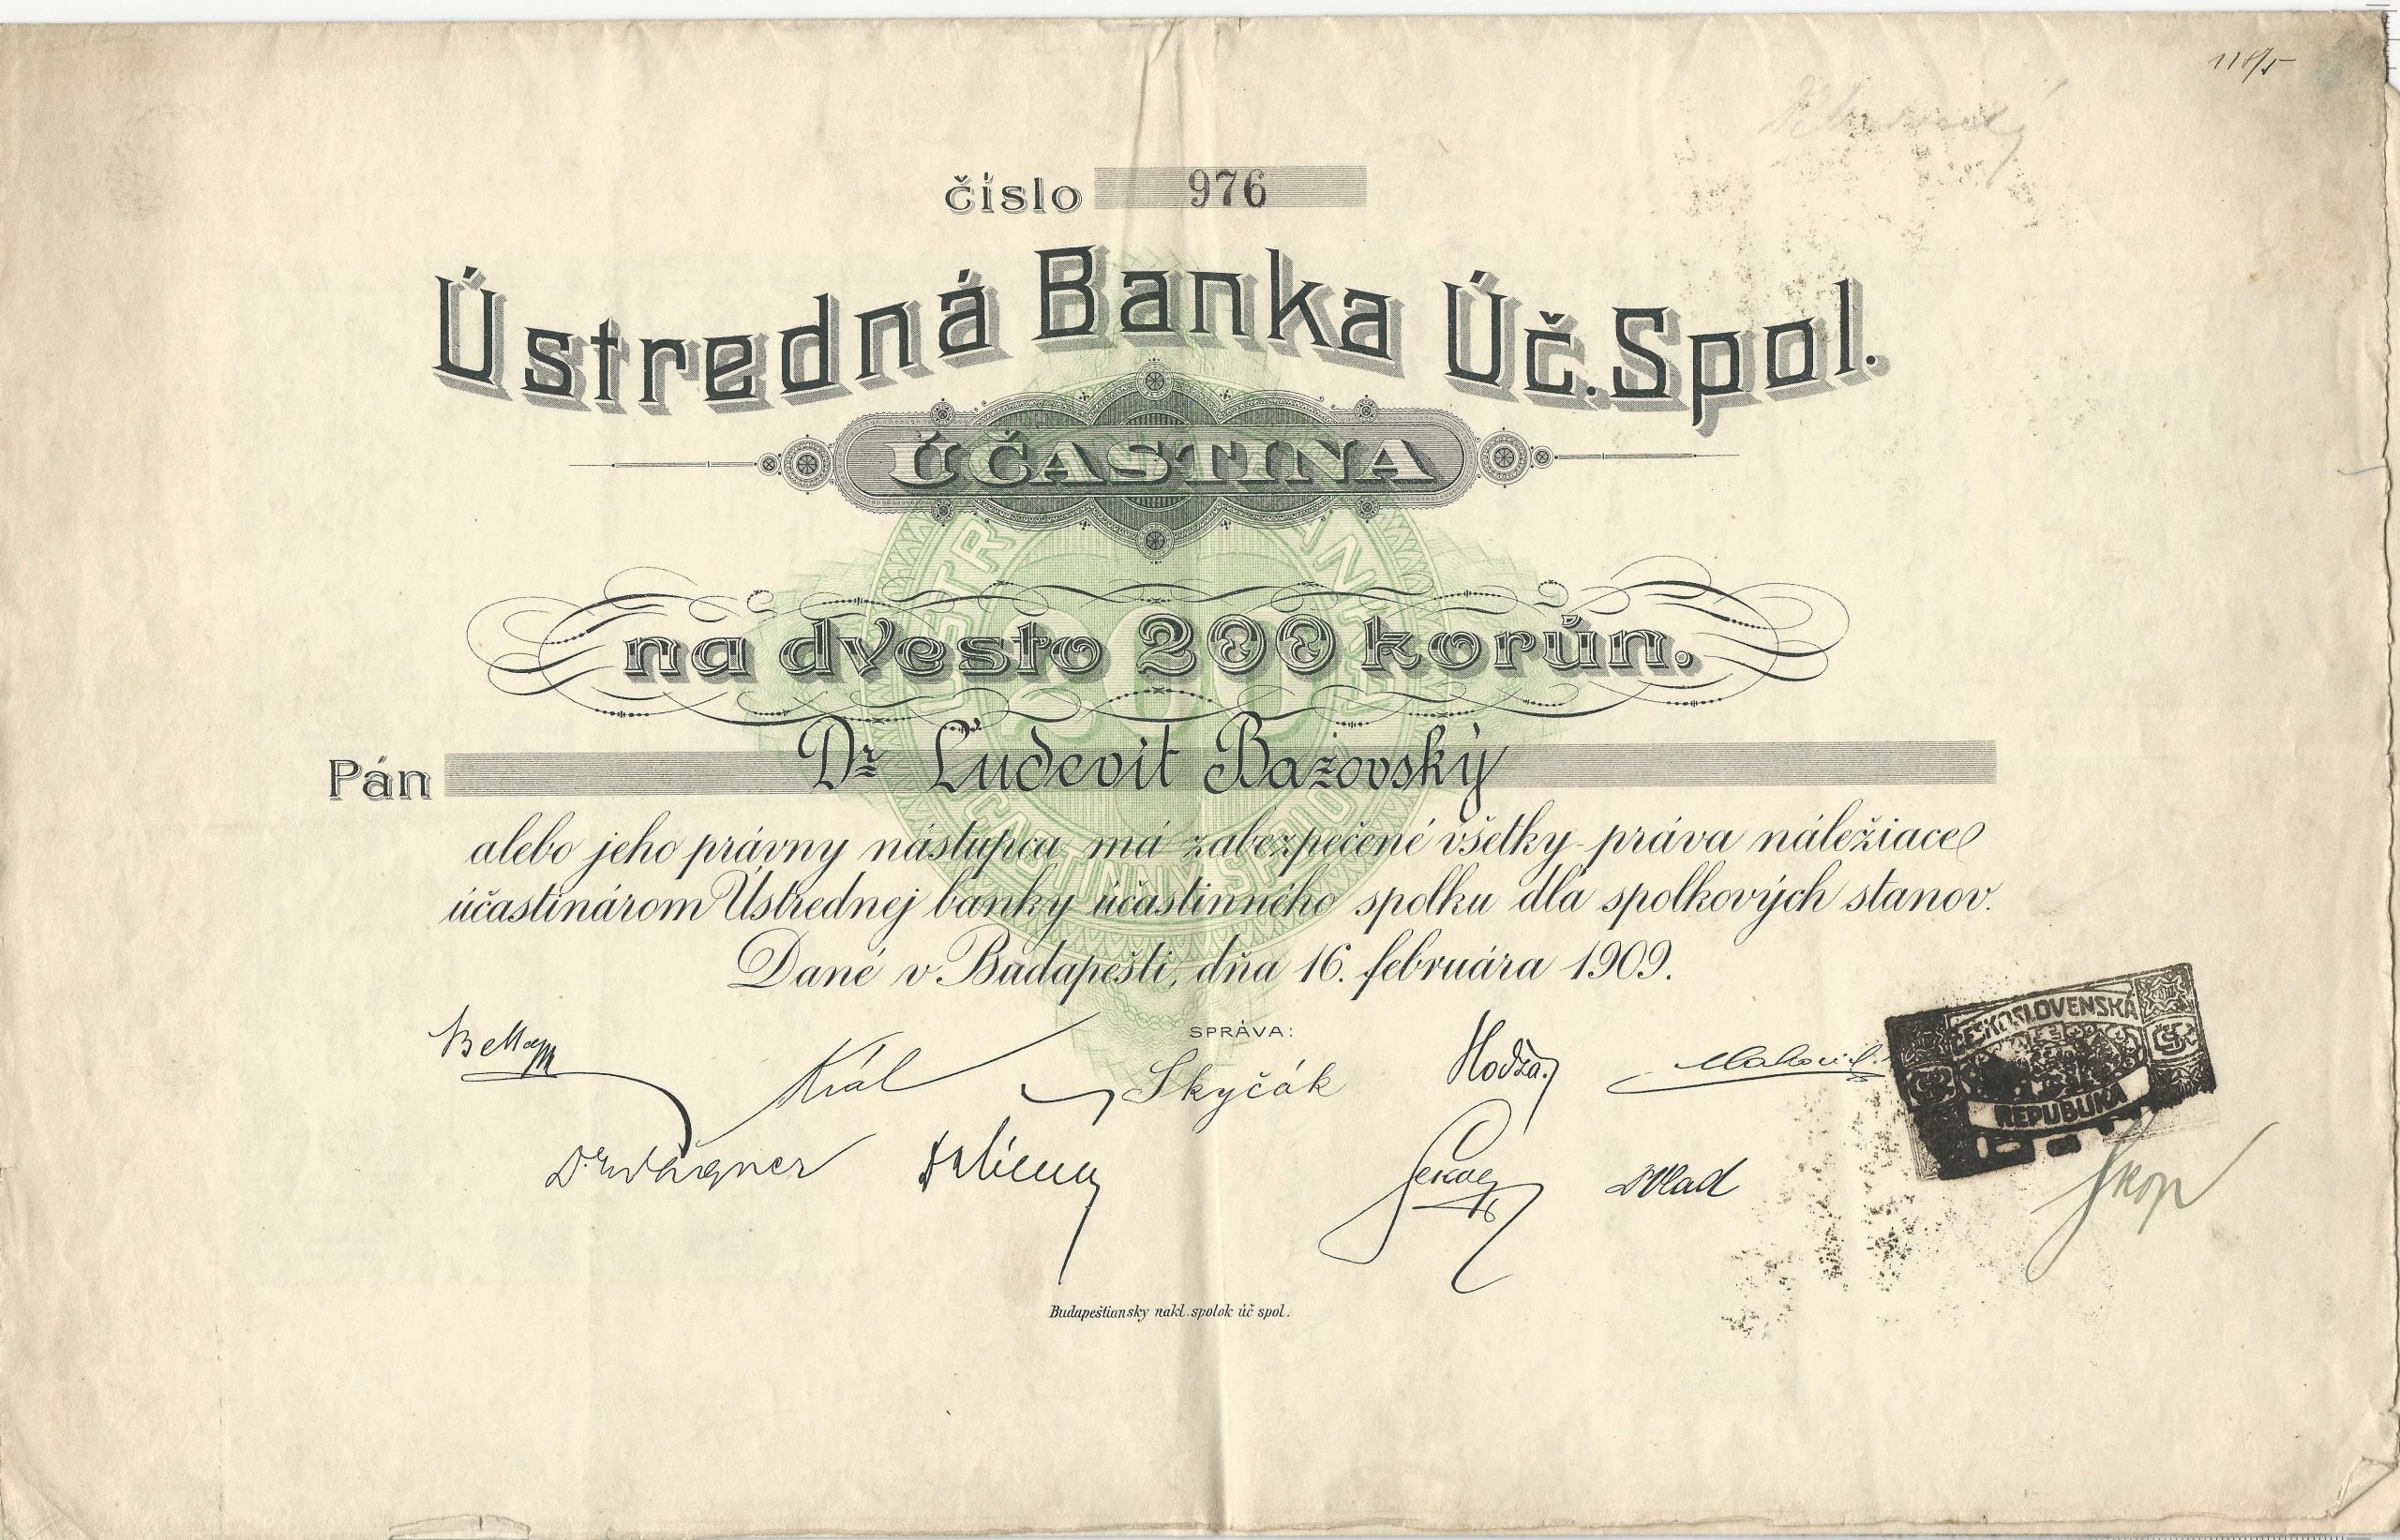 číslo 976
Ústredná Banka Úč. Spol.
ÚČASTINA
na dvesto 200 korún.
Pán Dr Ľudevit Bazovský
alebo jeho právny nástupca má zabezpečené všetky práva náležiace
účastinárom Ústrednej banky účastinného spolku dľa spolkových stanov.
Dané v Budapešti, dňa 16. februára 1909.
SPRÁVA:
Král Skyčák Hodža
ČESKOSLOVENSKÁ
REPUBLIKA
Dr Wagner Vlad
Budapeštiansky nakl. spolok úč spol.